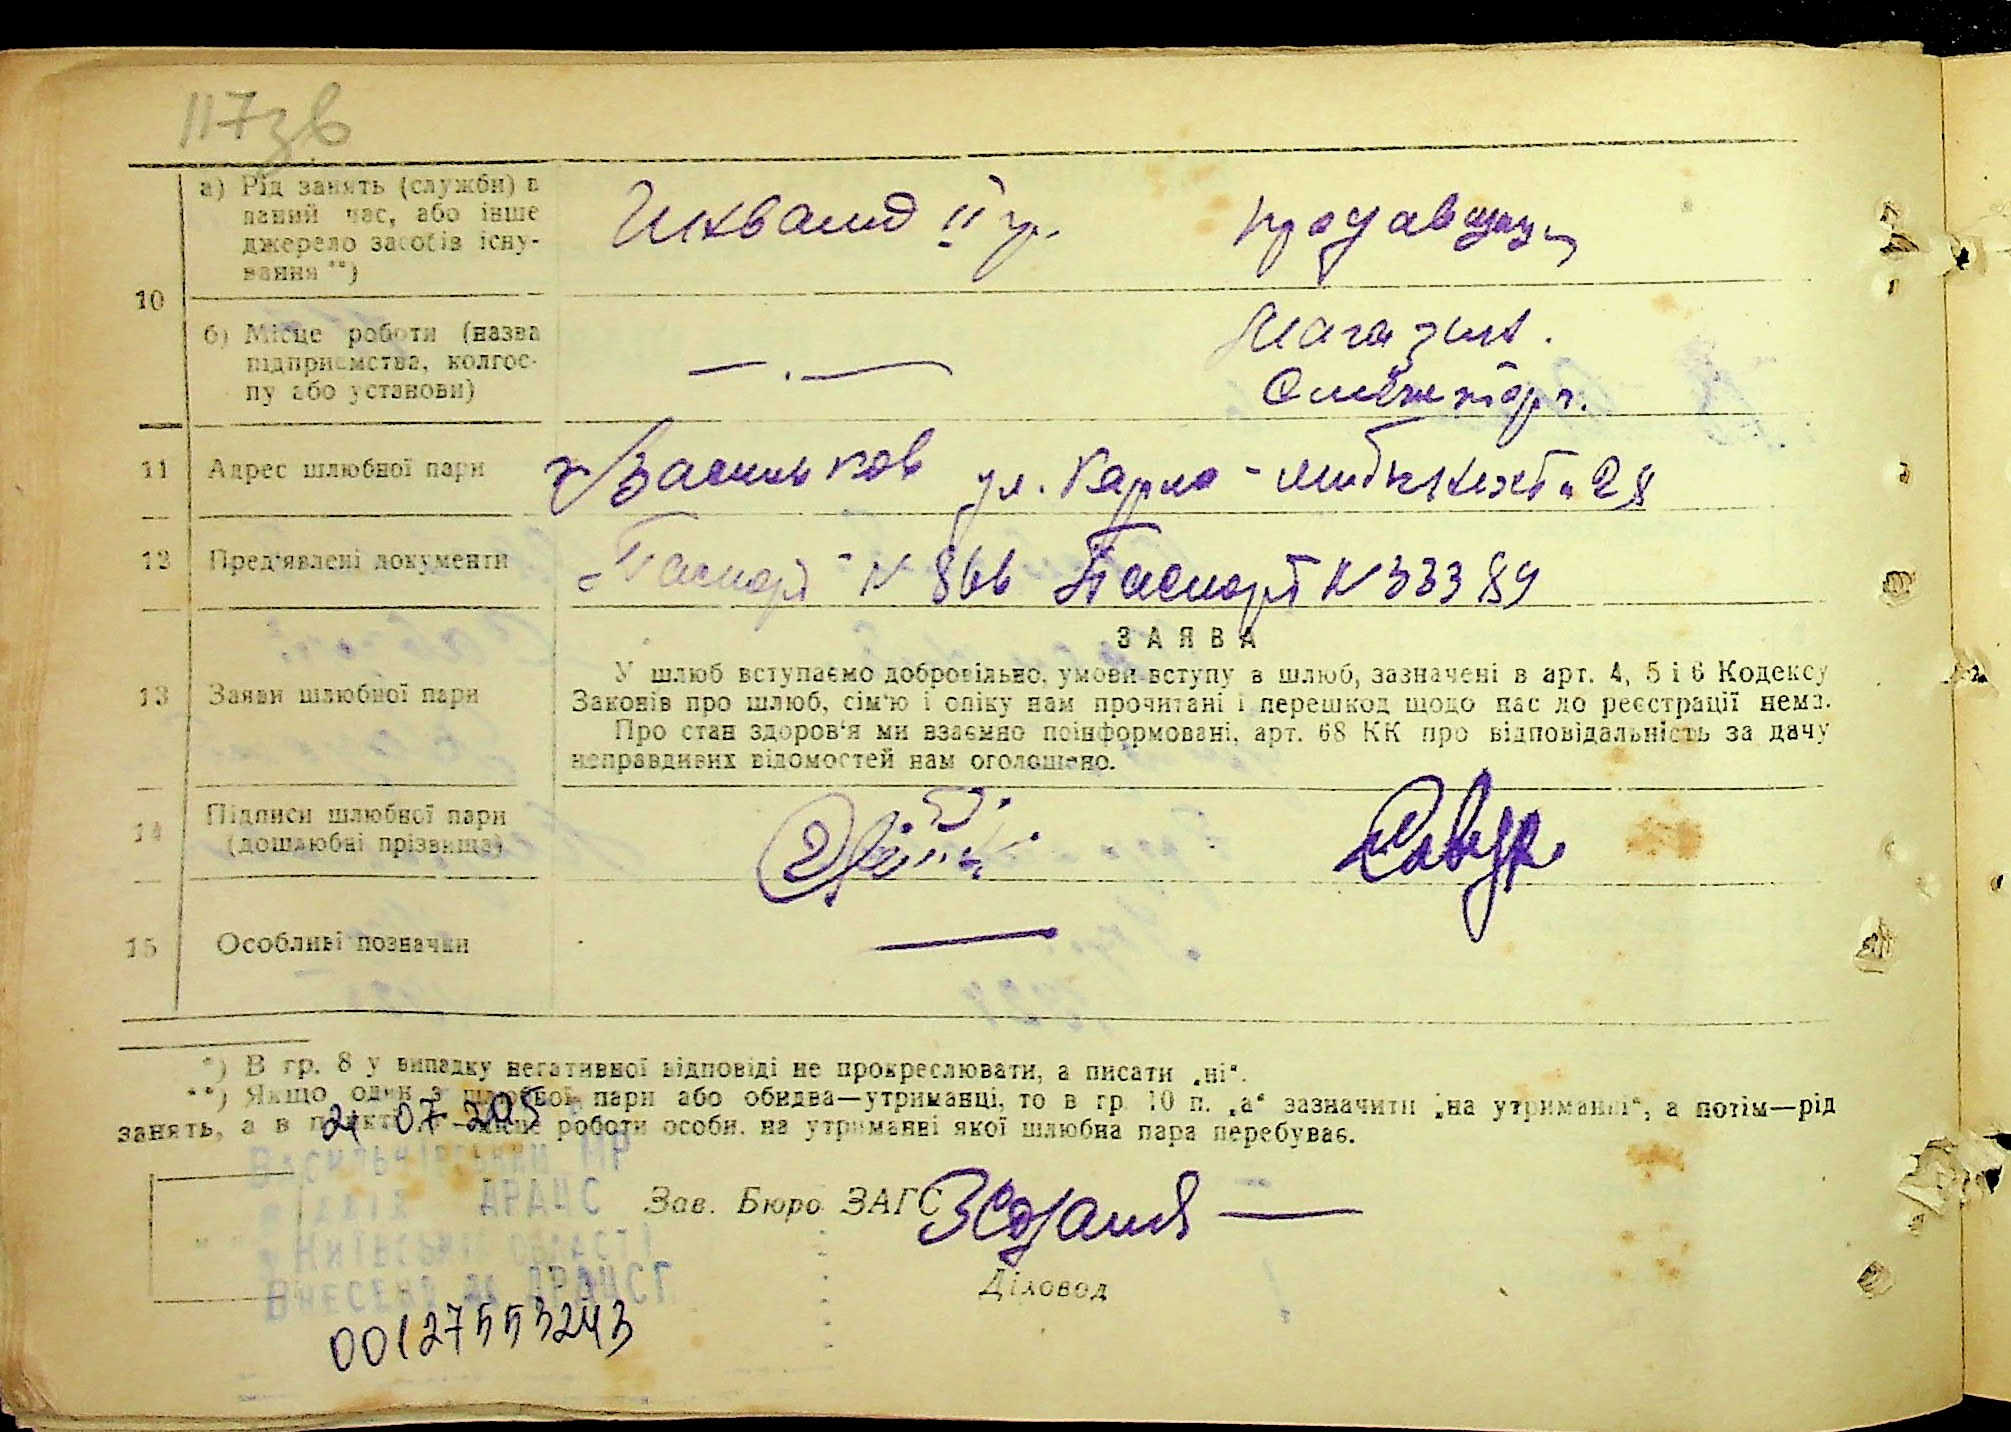 117зв
а) Рід занять (служби) в
даний час, або інше
джерело засобів існу-
вання **)
Инвалид II гр.
продавщица
10
б) Місце роботи (назва
підприємства, колгос-
пу або установи)
— . —
Магазин.
11 Адрес шлюбної пари г Васильков ул. Карла-Либкнехта 28
12 Пред'явлені документи Паспорт N 866 Паспорт N 33389
ЗАЯВА
13 Заяви шлюбної пари
У шлюб вступаємо добровільно, умови вступу в шлюб, зазначені в арт. 4, 5 і 6 Кодексу
Законів про шлюб, сім'ю і опіку нам прочитані і перешкод щодо нас до реєстрації нема.
Про стан здоров'я ми взаємно поінформовані, арт. 68 КК про відповідальність за дачу
неправдивих відомостей нам оголошено.
14 Підписи шлюбної пари
(дошлюбні прізвища)
15 Особливі позначки —
*) В гр. 8 у випадку негативної відповіді не прокреслювати, а писати „ні“.
**) Якщо один з шлюбної пари або обидва—утриманці, то в гр. 10 п. „а“ зазначити „на утриманні“, а потім—рід
занять, а в пункті місце роботи особи, на утриманні якої шлюбна пара перебуває.
21 07 2015
Васильківський МР
відділ ДРАЦС
Київської області
Внесено до ДРАЦСГ
00127553243
Зав. Бюро ЗАГС
Діловод